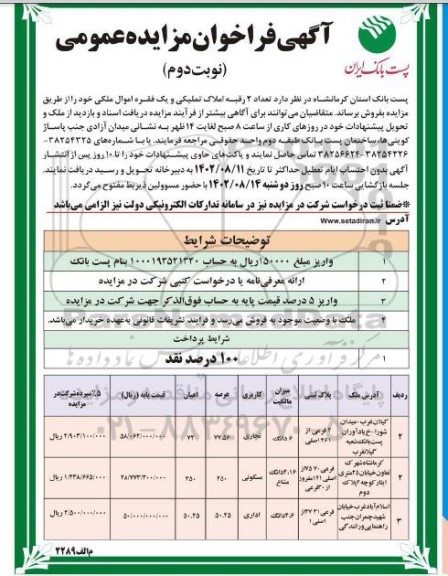 آگهی فراخوان مزایده عمومی
(نوبت دوم)
پست بانک ایران
پست بانک استان کرمانشاه در نظر دارد تعداد ۲ رقبه املاک تملیکی و یک فقره اموال ملکی خود را از طریق
مزایده بفروش برساند. متقاضیان می توانند برای آگاهی بیشتر از فرآیند مزایده دریافت اسناد و بازدید از ملک و
تحویل پیشنهادات خود در روزهای کاری از ساعت ۸ صبح لغایت ۱۴ ظهر به نشانی میدان آزادی جنب پاساژ
کویتی ها، ساختمان پست بانک طبقه دوم واحد حقوقی مراجعه فرمایند. یا با شماره های ۳۸۲۵۴۳۲۵-
۳۸۲۵۴۳۲۶ -۳۸۲۵۶۶۲۴ تماس حاصل نمایند و پاکت های حاوی پیشنهادات خود را تا ۱۰ روز پس از انتشار
آگهی بدون احتساب ایام تعطیل حداکثر تا تاریخ ۱۴۰۲/۰۸/۱۱ به دبیرخانه تحویل و رسید دریافت نمایند.
جلسه بازگشایی ساعت ۱۰ صبح روز دوشنبه ۱۴۰۲/۰۸/۱۴ با حضور مسوولین ذیربط مفتوح می گردد.
*ضمنا ثبت درخواست شرکت در مزایده نیز در سامانه تدارکات الکترونیکی دولت نیز الزامی می باشد
آدرس Www.setadiran.ir
توضیحات شرایط
۱ واریز مبلغ ۱۵۰۰۰۰۰ ریال به حساب ۱۰۰۰۱۹۳۵۲۱۳۳۰ بنام پست بانک
۲ ارائه معرفی نامه یا درخواست کتبی شرکت در مزایده
۳ واریز ۵ درصد قیمت پایه به حساب فوق الذکر جهت شرکت در مزایده
۴ ملک با وضعیت موجود به فروش می رسد و فرایند تشریفات قانونی به عهده خریدار می باشد.
شرایط پرداخت
۱ ۱۰۰ درصد نقد
ردیف آدرس ملک پلاک ثبتی میزان مالکیت کاربری عرصه اعیان قیمت پایه (ریال) ۵٪ سپرده شرکت در مزایده
۲ گیلانغرب-میدان شورا-خ یادآوران پست بانک شعبه گیلانغرب ۲ فرعی از ۲۶۱ اصلی ۶ دانگ تجاری ۷۷.۵۶ ۷۳۰ ۵۸/۰۶۲/۰۰۰/۰۰۰ ۲/۹۰۳/۱۰۰/۰۰۰
۲ کرمانشاه شهرک تعاون خیابان ۲۵ متری ایثار کوچه ۲ پلاک دوم مشاع مسکونی ۲۵۰ ۲۵۰ ۲۸/۷۷۳/۳۰۰/۰۰۰ ۱/۴۳۸/۶۶۵/۰۰۰
۳ اسلام آباد غرب خیابان شهید چمران جنب راهنمایی و رانندگی اداری ۵۰.۲۵ ۵۰.۲۵ ۵۰/۰۰۰/۰۰۰/۰۰۰ ۲/۵۰۰/۰۰۰/۰۰۰
م الف ۲۲۸۹
ParsNamadData
۰۲۱-۸۸۳۴۹۶۷۰